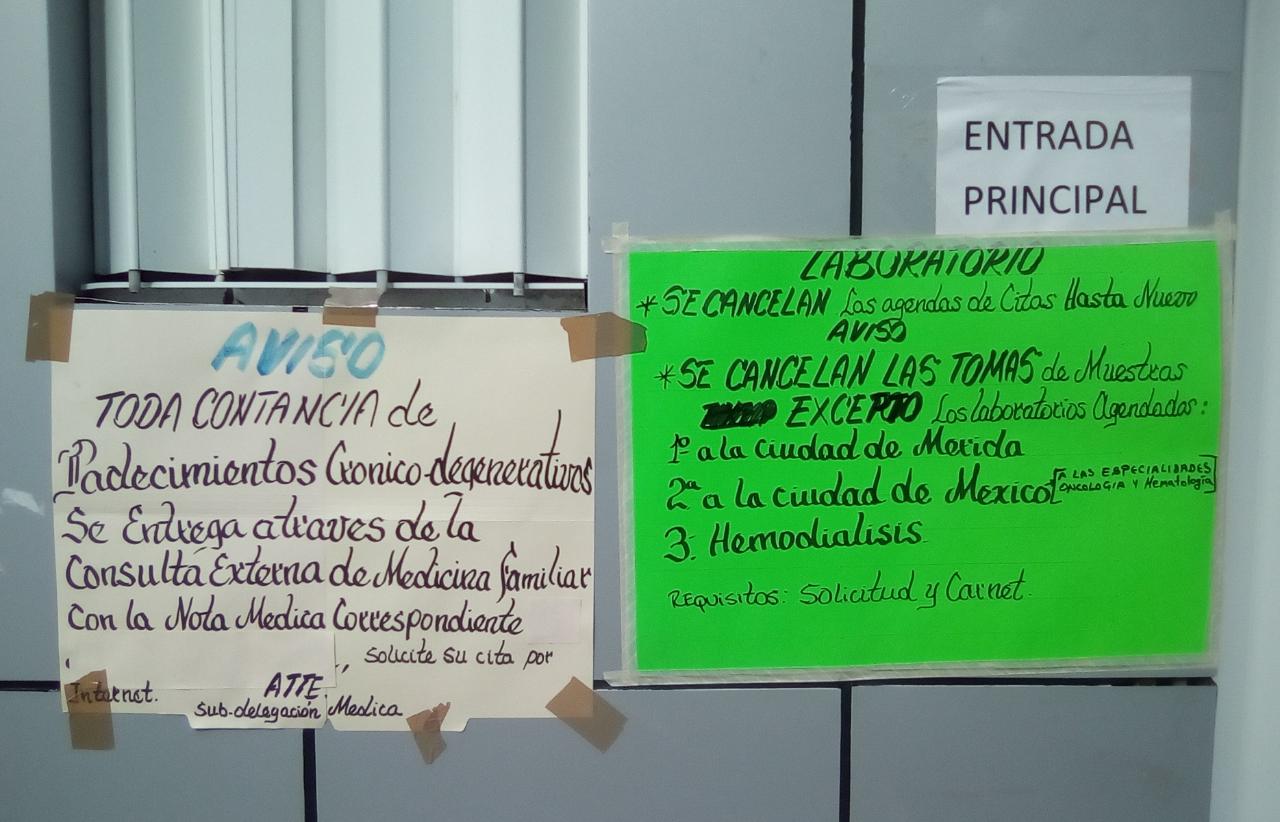 ENTRADA
PRINCIPAL
AVISO
TODA CONTANCIA de
Padecimientos Cronico-degenerativos
Se Entrega atraves de la
Consulta Externa de Medicina familiar
Con la Nota Medica Correspondiente
, solicite su cita por
Internet.
ATTE
Sub-delegación Medica
LABORATORIO
* SE CANCELAN Las agendas de Citas Hasta Nuevo
AVISO
* SE CANCELAN LAS TOMAS de Muestras
EXCEPTO Los laboratorios Agendadas:
1º a la ciudad de Merida
2ª a la ciudad de Mexico [A LAS ESPECIALIDADES
ONCOLOGIA Y Hematologia]
3. Hemodialisis.
REQUISITOS: Solicitud y Carnet.